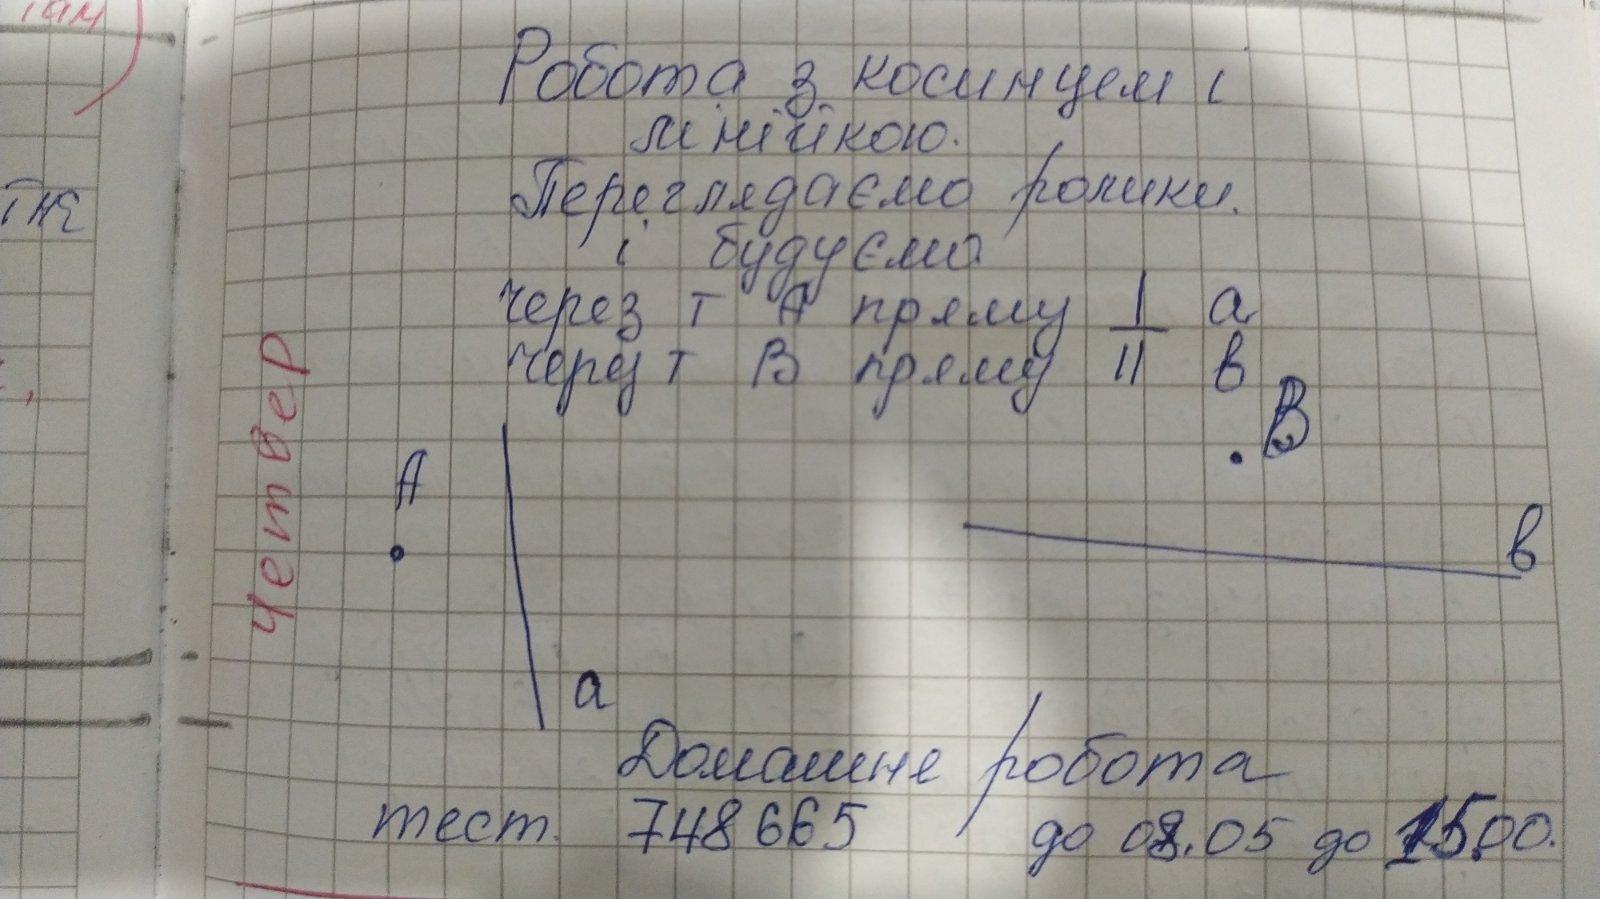 Робота з косинцем і
лінійкою.
Переглядаємо ролики.
і будуємо
через т А пряму ⊥ а
через т В пряму || в
Четвер
А
В
в
а
Домашне робота
тест. 748665 до 08.05 до 15.00.